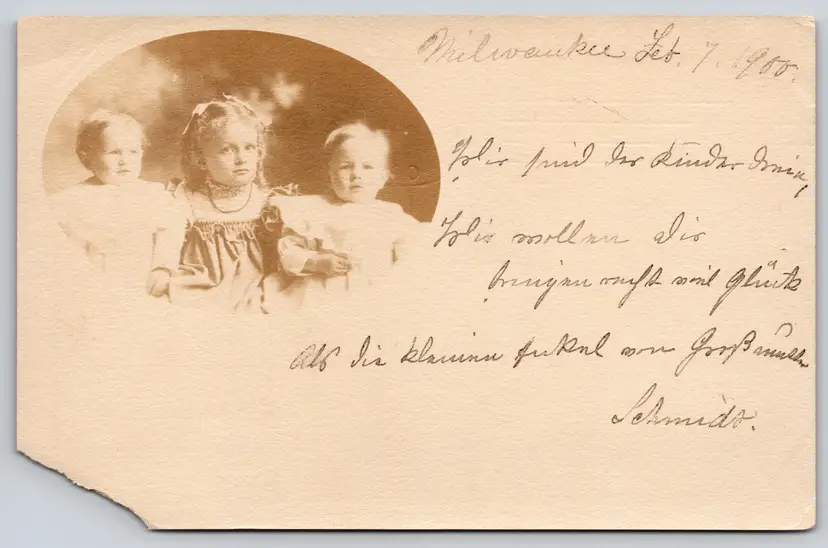 Milwaukee Feb. 7. 1900.
Wir sind der Kinder drei,
Wir wollen dir
bringen recht viel Glück
Als die kleinen Enkel von Großmutter
Schmidt.